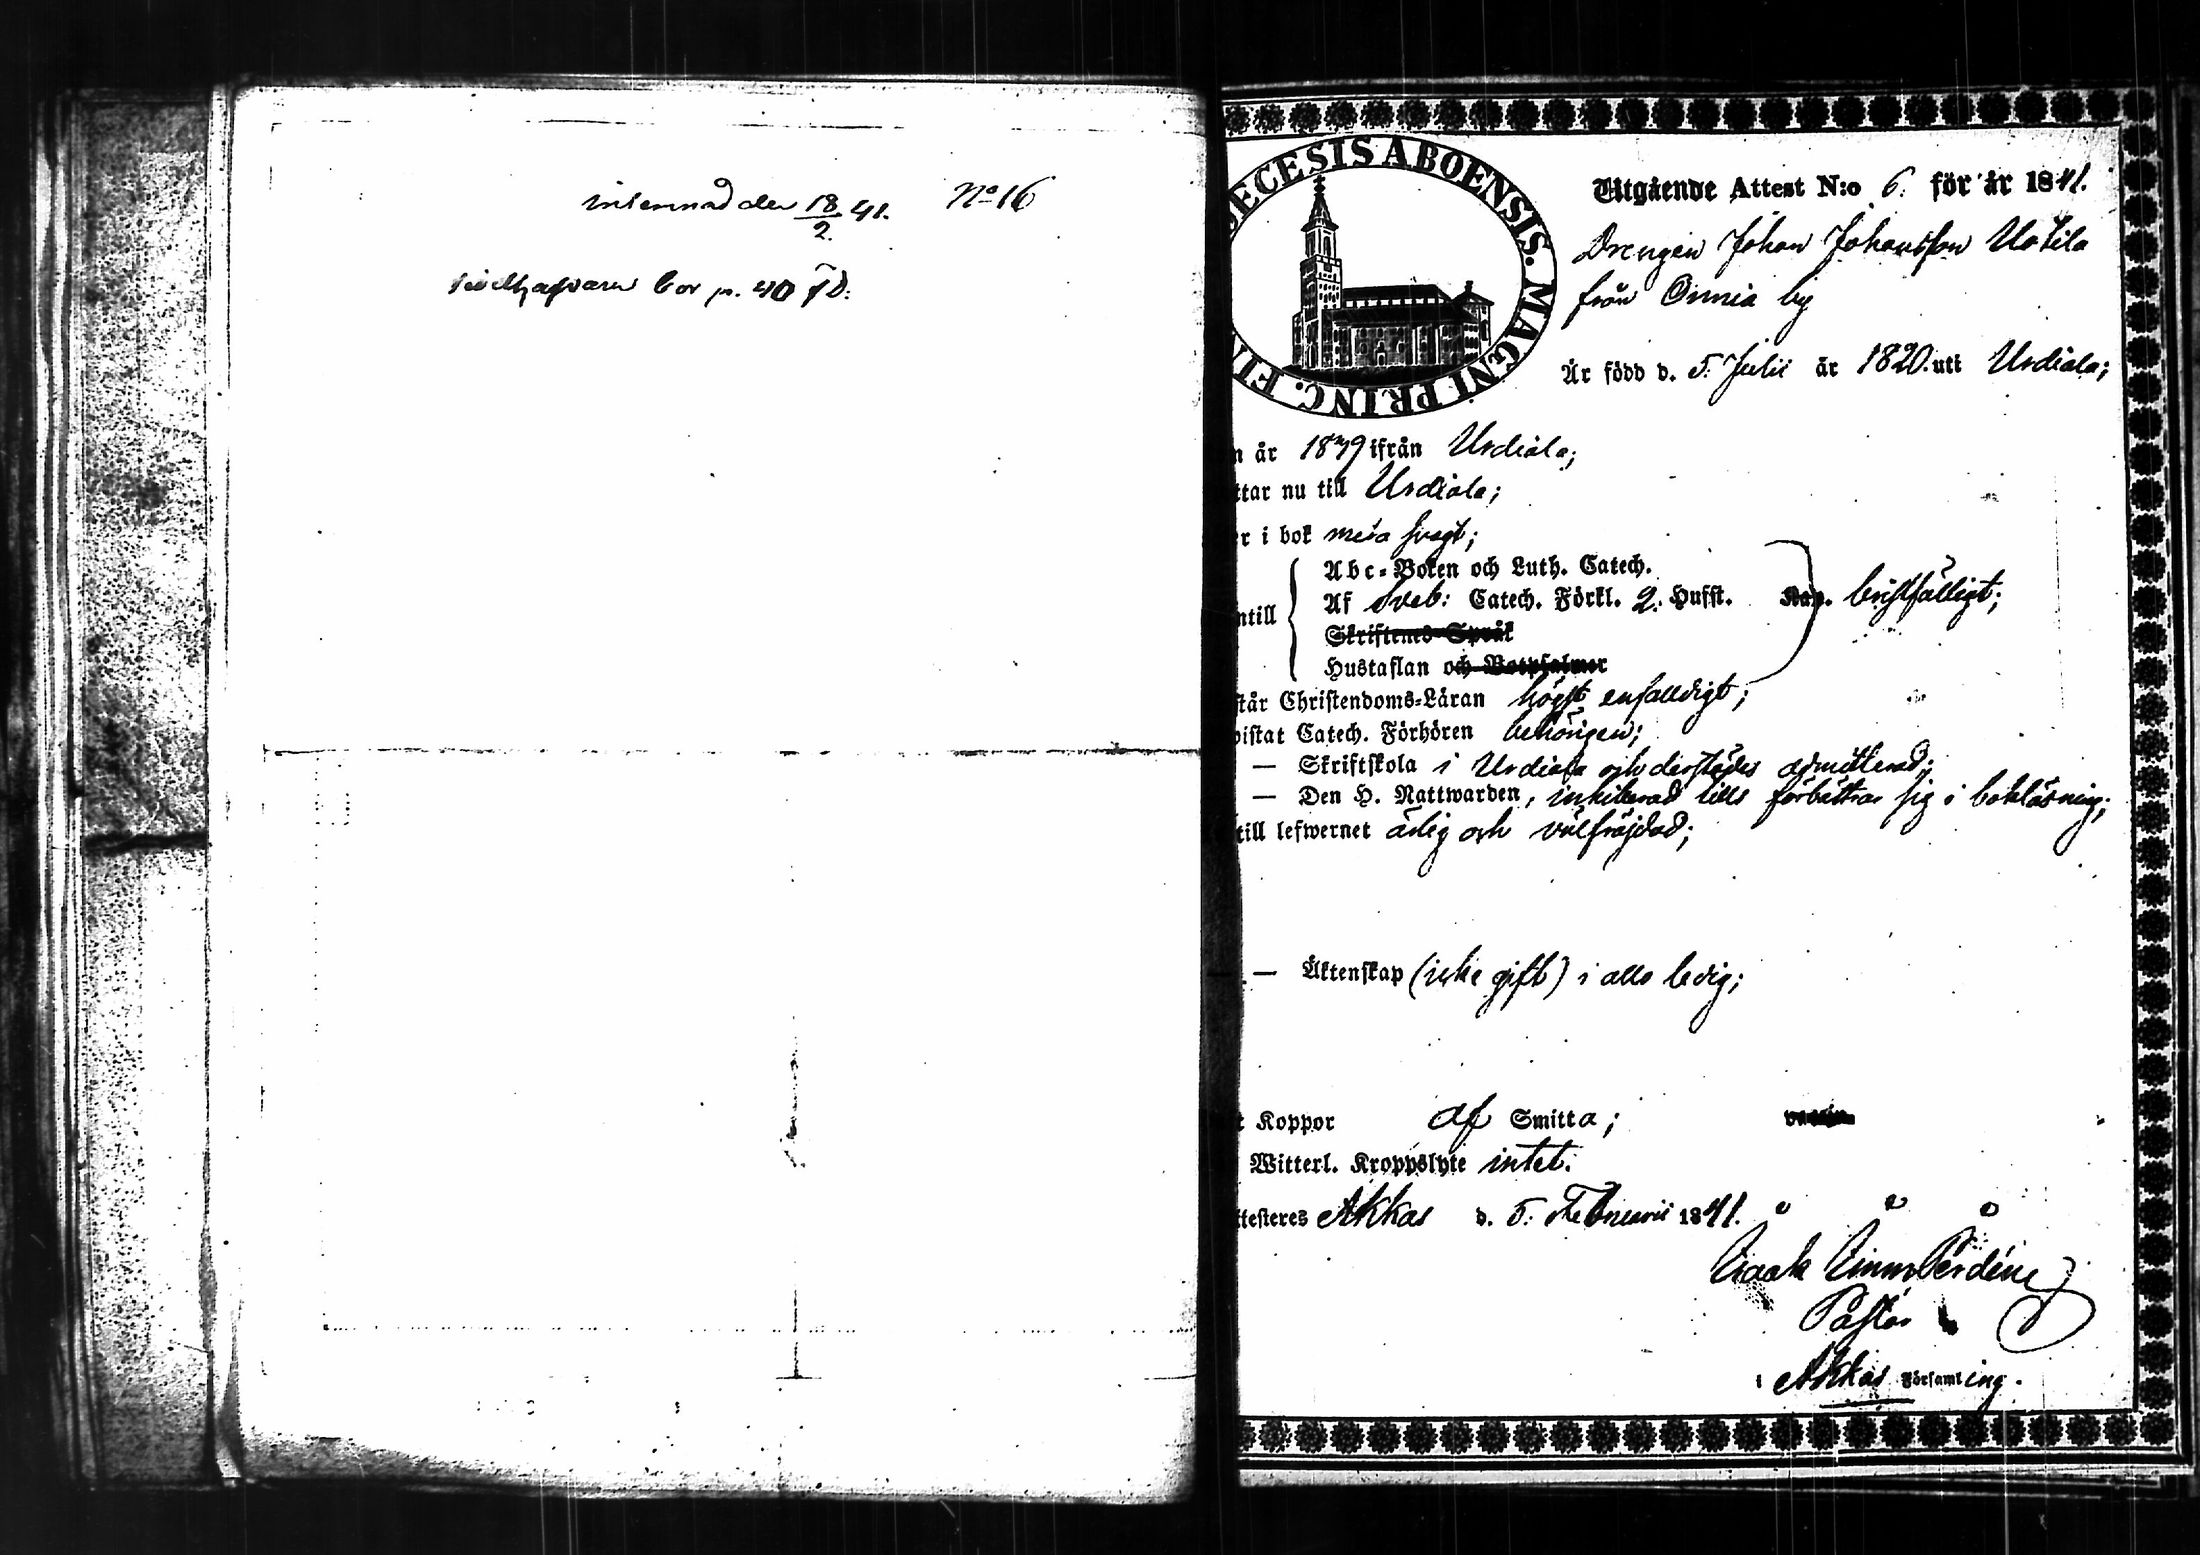 inlemnad den 18/2 41. No 16
bor p. 40
DECESIS ABOENSIS. MAGNI PRINC. FIN
Utgående Attest N:o 6. för år 1841.
Drengen Johan Johansson Uotila
från Onnia by
Är född d. 5. Julii år 1820. uti Urdiala;
n år 1839 ifrån Urdiala;
ttar nu till Urdiala;
er i bok svagt;
Abc-Boken och Luth. Catech.
ntill Af Sveb: Catech. Förkl. 2. Husst. Kap. bristfälligt;
Skriftenes Språk
Hustaflan och Botpsalmer
står Christendoms-Läran högst enfalldigt;
vistat Catech. Förhören behörigen;
— Skriftskola i Urdiala och derstädes admitterad;
— Den H. Nattwarden, inhiberad tills förbättrar sig i bokläsning;
till lefwernet ärlig och välfräjdad;
— Äktenskap (icke gift) i allo ledig;
t Koppor af Smitta; vaccin
Witterl. Kroppslyte intet.
ttesteres Akkas d. 5. Februarii 1841.
Pastor
i Akkas Församling.